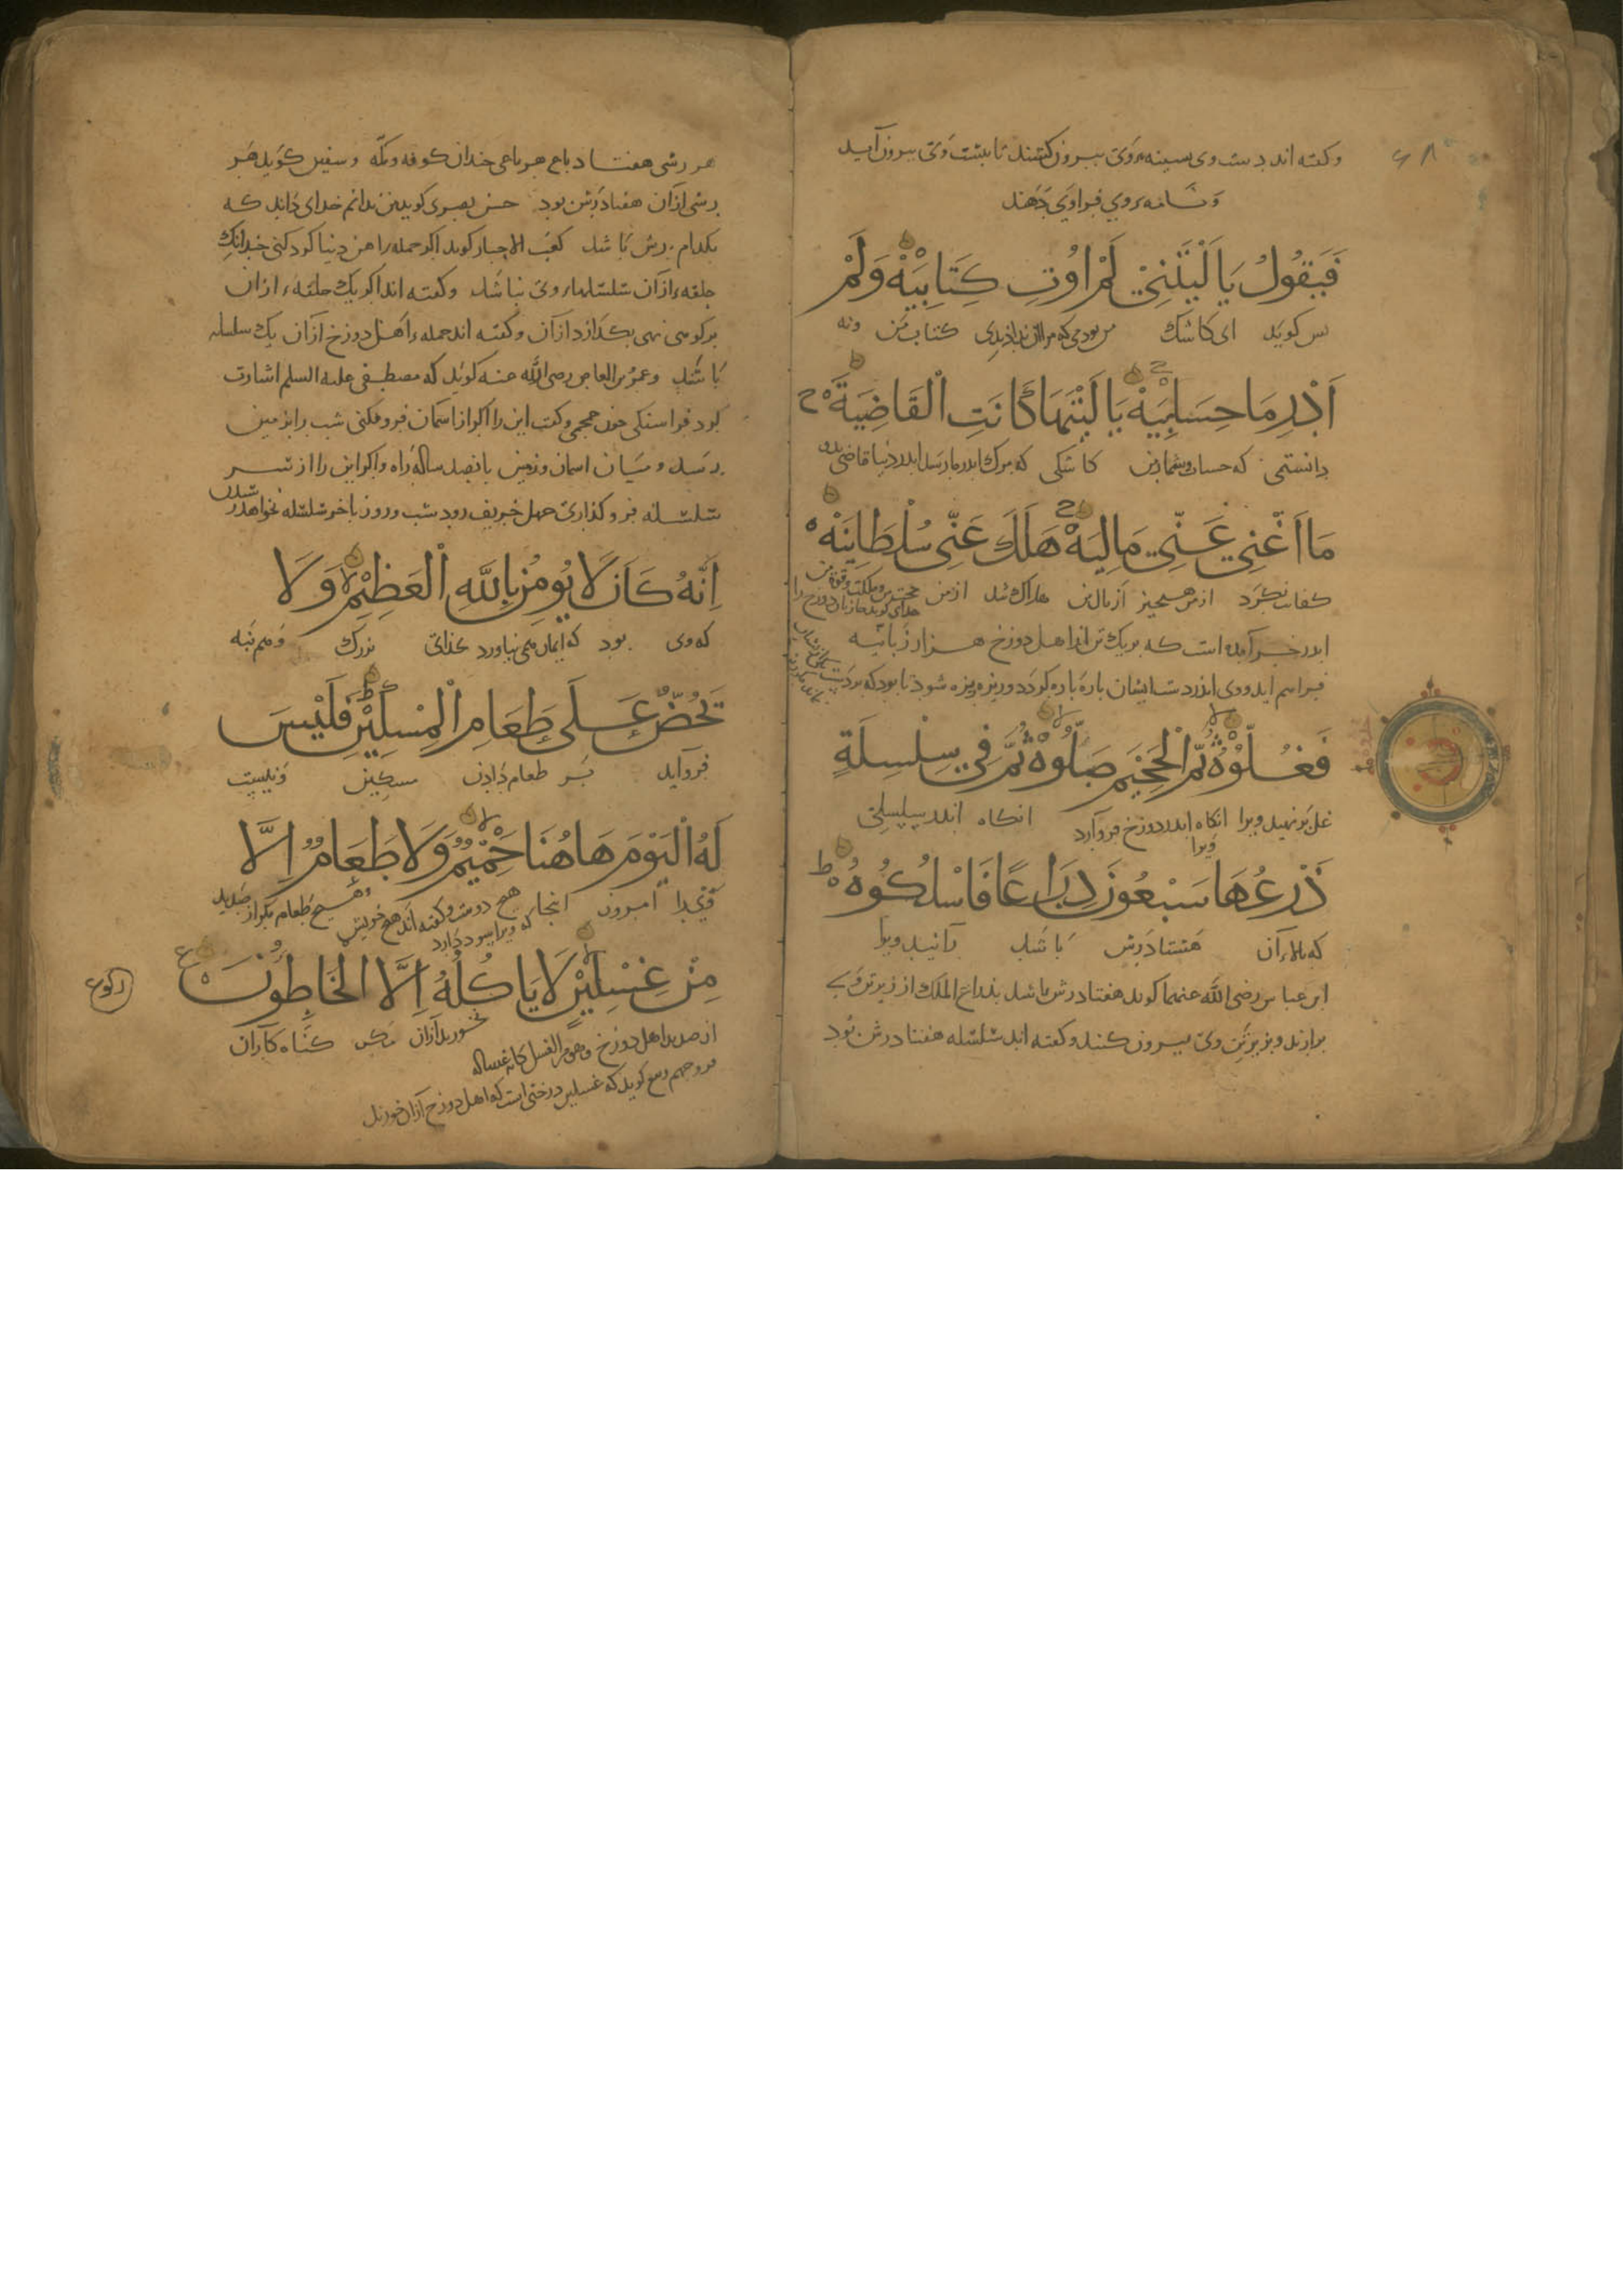 وکفته اند دست وی بسینهٔ وی بیرون کشند تا ببشت وی بیرون آید
ونامه بروی فراوی دهند
فَيَقُولُ يَا لَيْتَنِي لَمْ اُوتَ كِتَابِيَهْ وَلَمْ
بس کوید ای کاشک من بودمی که مرا کتاب من ونه
اَدْرِ مَا حِسَابِيَهْ يَا لَيْتَهَا كَانَتِ الْقَاضِيَةَ
دانستمی که حساب وشمار من کاشکی که مرک
مَا اَغْنٰى عَنِّي مَالِيَهْ هَلَكَ عَنِّي سُلْطَانِيَهْ
کفایت نکرد از من هیچیز از مال من هلاک شد از من حجت من
اندر خبر آمده است که بر یک تن از اهل دوزخ هزار زبانیه
فراسم آید ووی اندر دست ایشان باره باره کردد وریزه ریزه شود تا بود که
فَغُلُّوهُ ثُمَّ الْجَحِيمَ صَلُّوهُ ثُمَّ فِي سِلْسِلَةٍ
غل بر نهید ویرا انکاه اندر دوزخ فرو آرد انکاه اندر سلسلتی
ویرا
ذَرْعُهَا سَبْعُونَ ذِرَاعًا فَاسْلُكُوهُ
که بالاء آن هفتاد رش باشد ویرا
ابن عباس رضی الله عنهما کوید هفتاد رش باشد بذراع الملک از زیر تن وی
براند وبزیر تن وی بیرون کنند وکفته اند سلسله هفتاد رش بود
هر رشی هفتاد باع هر باعی چندان کوفه ومکه وسفین کوید هر
رشی از آن هفتاد رش بود حسن بصری کوید من ندانم خدای داند که
بکدام رش باشد کعب الاحبار کوید اکر جمله آهن دنیا کرد کنی چندانک
حلقهٔ از آن سلسلهاء وی نباشد وکفته اند اکر یک حلقهٔ از آن
بر کوهی نهی بکدازد از آن وکفته اند جملهٔ اهل دوزخ از آن یک سلسله
باشند وعمرو بن العاص رضی الله عنه کوید که مصطفی علیه السلم اشارت
کرد فرا سنکی چون جمجمی وکفت این را اکر از اسمان فرو فکنی شب را بزمین
رسد ومیان اسمان وزمین بانصد ساله راه واکر این را از سر
سلسله فرو کذاری چهل خریف رود شب وروز باخر سلسله نخواهد رسیدن
اِنَّهُ كَانَ لَا يُومِنُ بِاللّٰهِ الْعَظِيْمِ وَلَا
که وی بود که ایمان می نیاورد بخدای بزرک وهم نبه
تَحُضُّ عَلٰى طَعَامِ الْمِسْكِيْنِ فَلَيْسَ
فرو آید بر طعام دادن مسکین ونیست
لَهُ الْيَوْمَ هَاهُنَا حَمِيْمٌ وَلَا طَعَامٌ اِلَّا
وی را امروز اینجا هیچ دوست وکفته اند هیچ خویش وهیچ طعام مکر از صدید
که ویرا سود دارد
مِنْ غِسْلِيْنٍ لَا يَاكُلُهُ اِلَّا الْخَاطِؤُنَ
رکوع
از صدید اهل دوزخ وهو من الغسل کانه غساله نخورند از آن مکر کناه کاران
کوید که غسلین درختی است که اهل دوزخ از آن خورند